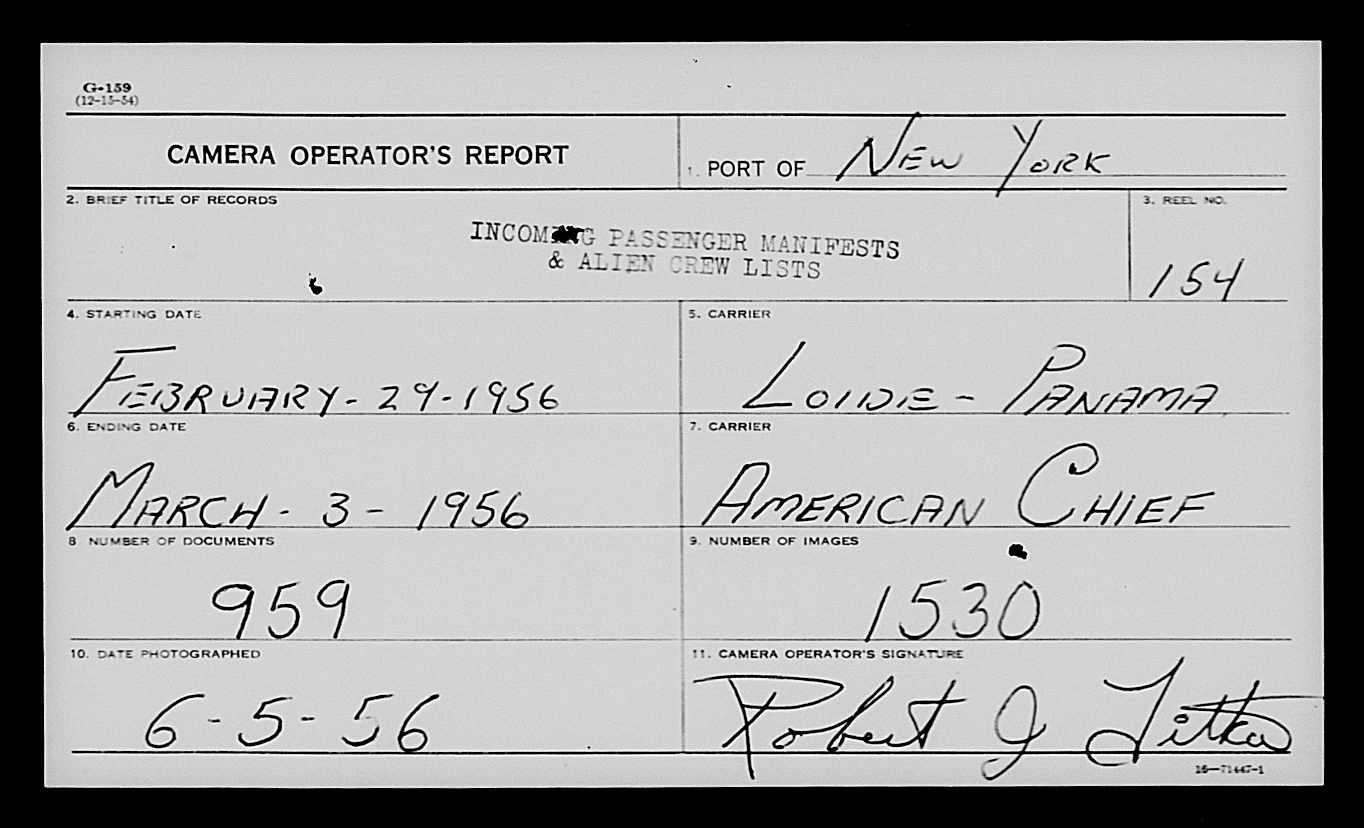 G-159
(12-15-54)
CAMERA OPERATOR'S REPORT
1. PORT OF NEW YORK
2. BRIEF TITLE OF RECORDS
INCOMING PASSENGER MANIFESTS
& ALIEN CREW LISTS
3. REEL NO.
154
4. STARTING DATE
FEBRUARY-29-1956
5. CARRIER
LOIDE - PANAMA
6. ENDING DATE
MARCH - 3 - 1956
7. CARRIER
AMERICAN CHIEF
8 NUMBER OF DOCUMENTS
959
9. NUMBER OF IMAGES
1530
10. DATE PHOTOGRAPHED
6-5-56
11. CAMERA OPERATOR'S SIGNATURE
Robert J
16—71447-1